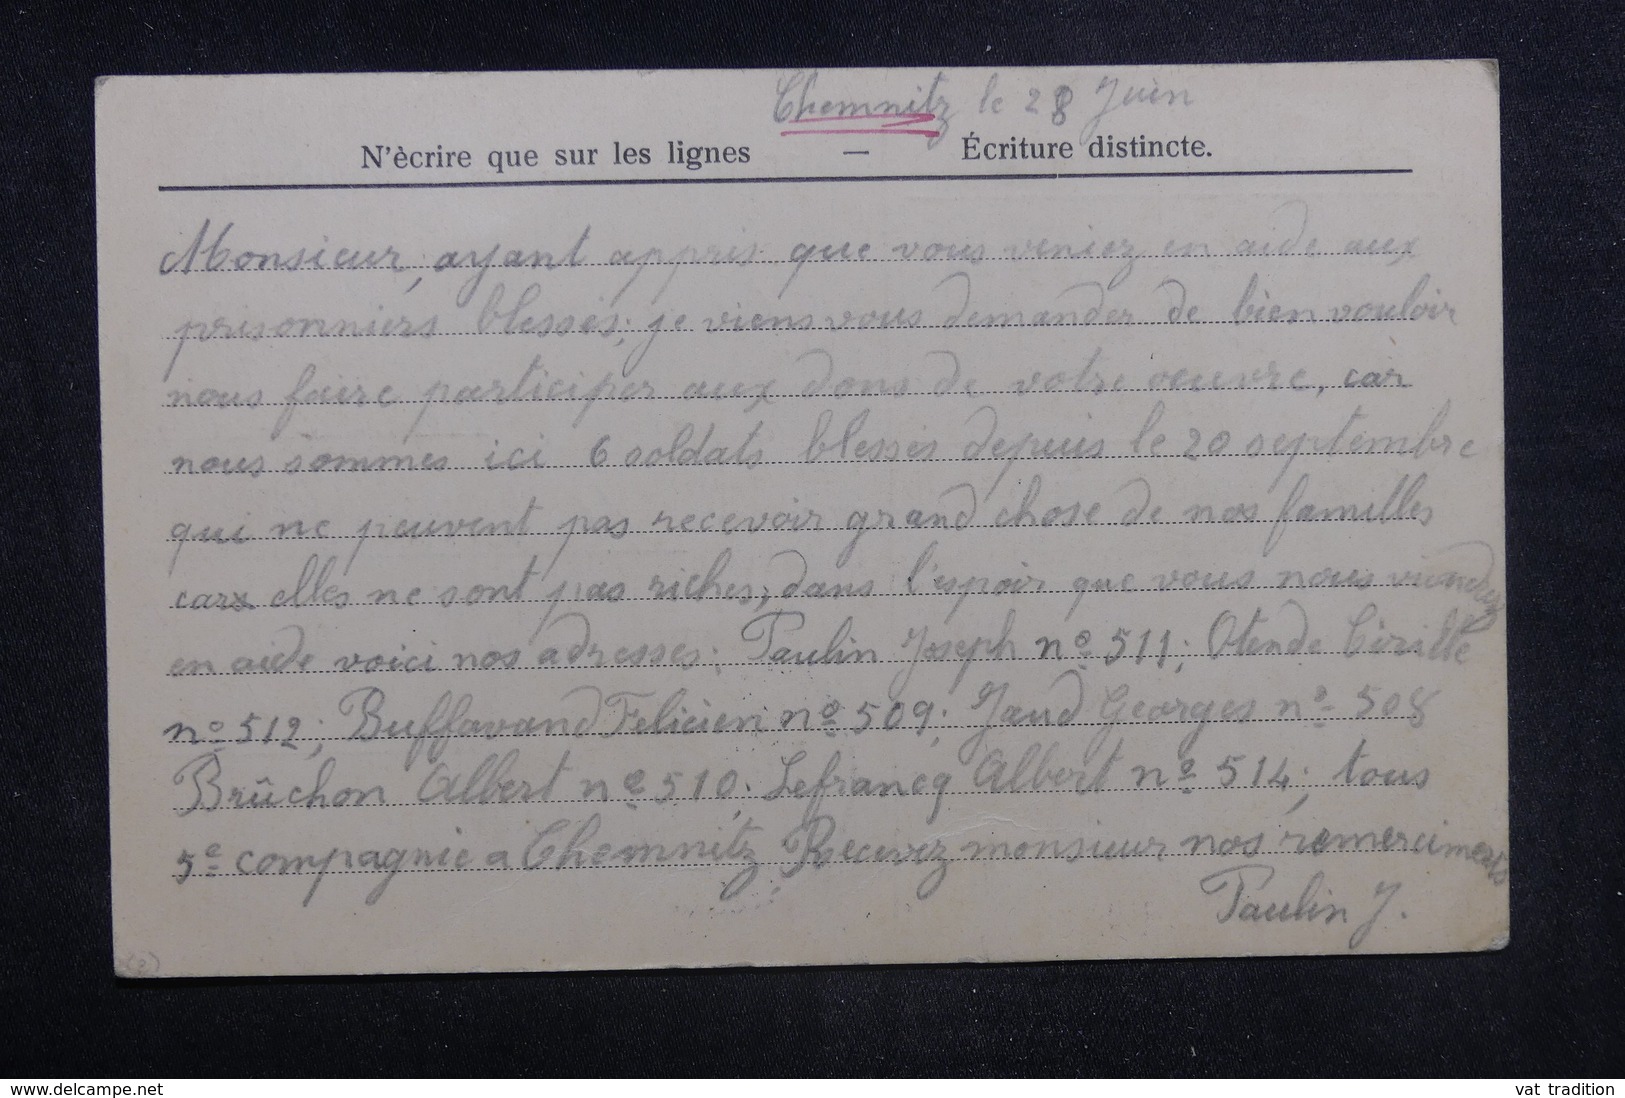 Chemnitz le 28 Juin
N'ècrire que sur les lignes — Écriture distincte.
Monsieur, ayant appris que vous veniez en aide aux
prisonniers blessés; je viens vous demander de bien vouloir
nous faire participer aux dons de votre oeuvre, car
nous sommes ici 6 soldats blessés depuis le 20 septembre
qui ne peuvent pas recevoir grand chose de nos familles
car elles ne sont pas riches; dans l'espoir que vous nous viendrez
en aide voici nos adresses: Paulin Joseph nº 511; Otende Cirille
nº 512; Buffavand Felicien nº 509; Jaud Georges nº 508
Brûchon Albert nº 510; Lefrancq Albert nº 514; tous
5e compagnie a Chemnitz, Recevez monsieur nos remerciments
Paulin J.
www.delcampe.net
vat tradition